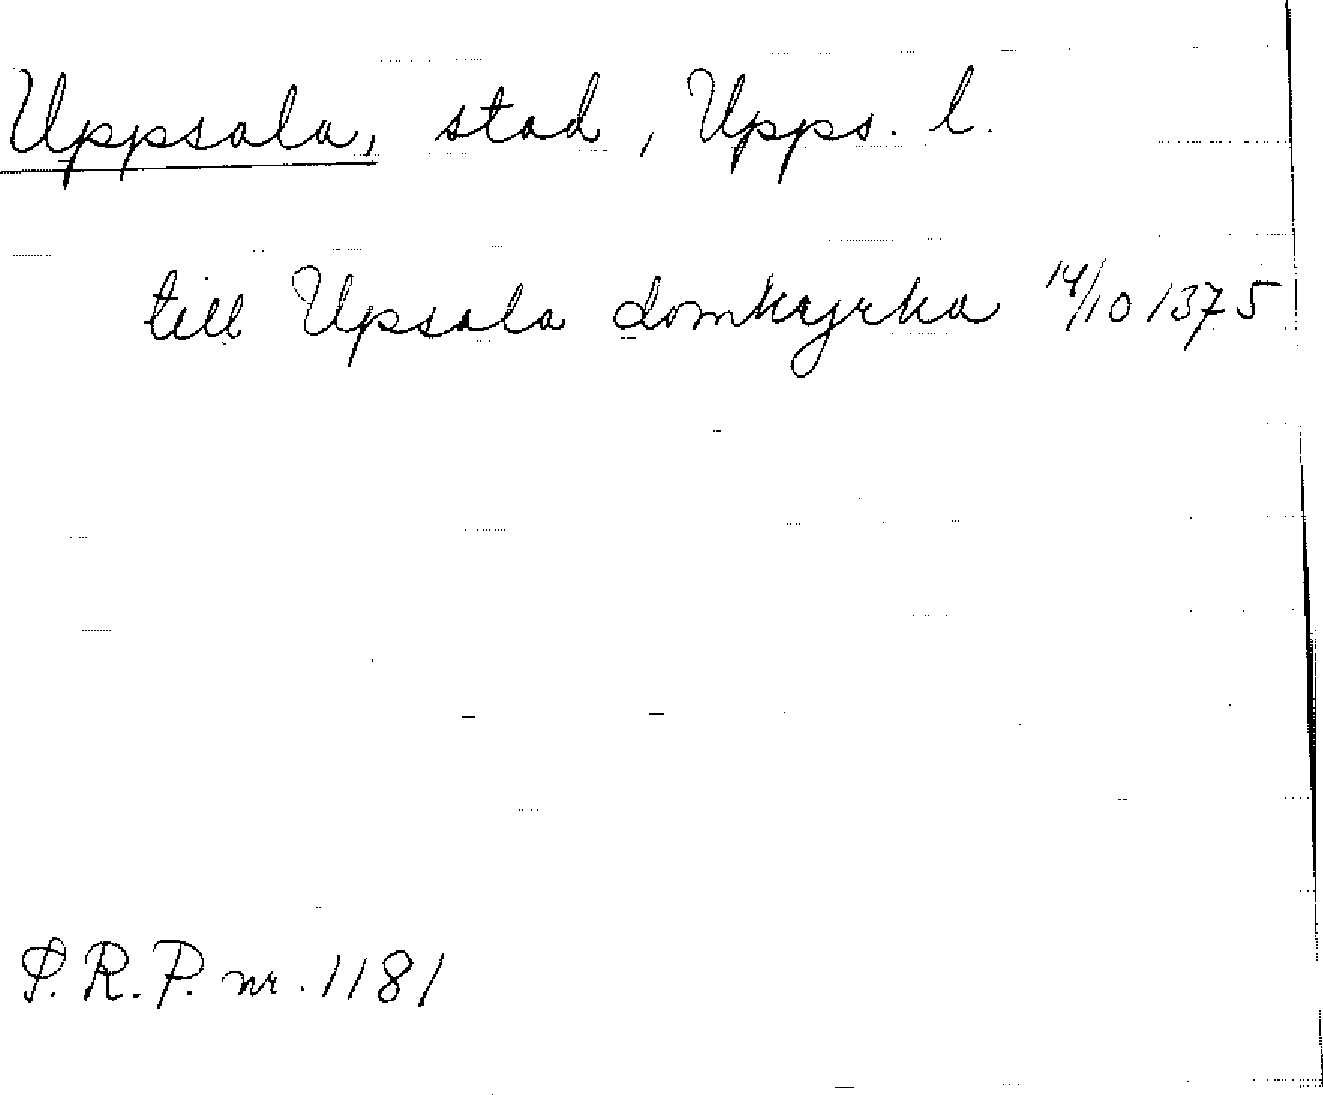 Uppsala, stad, Upps. l.
till Upsala domkyrka 14/10 1375
S.R.P. nr. 1181